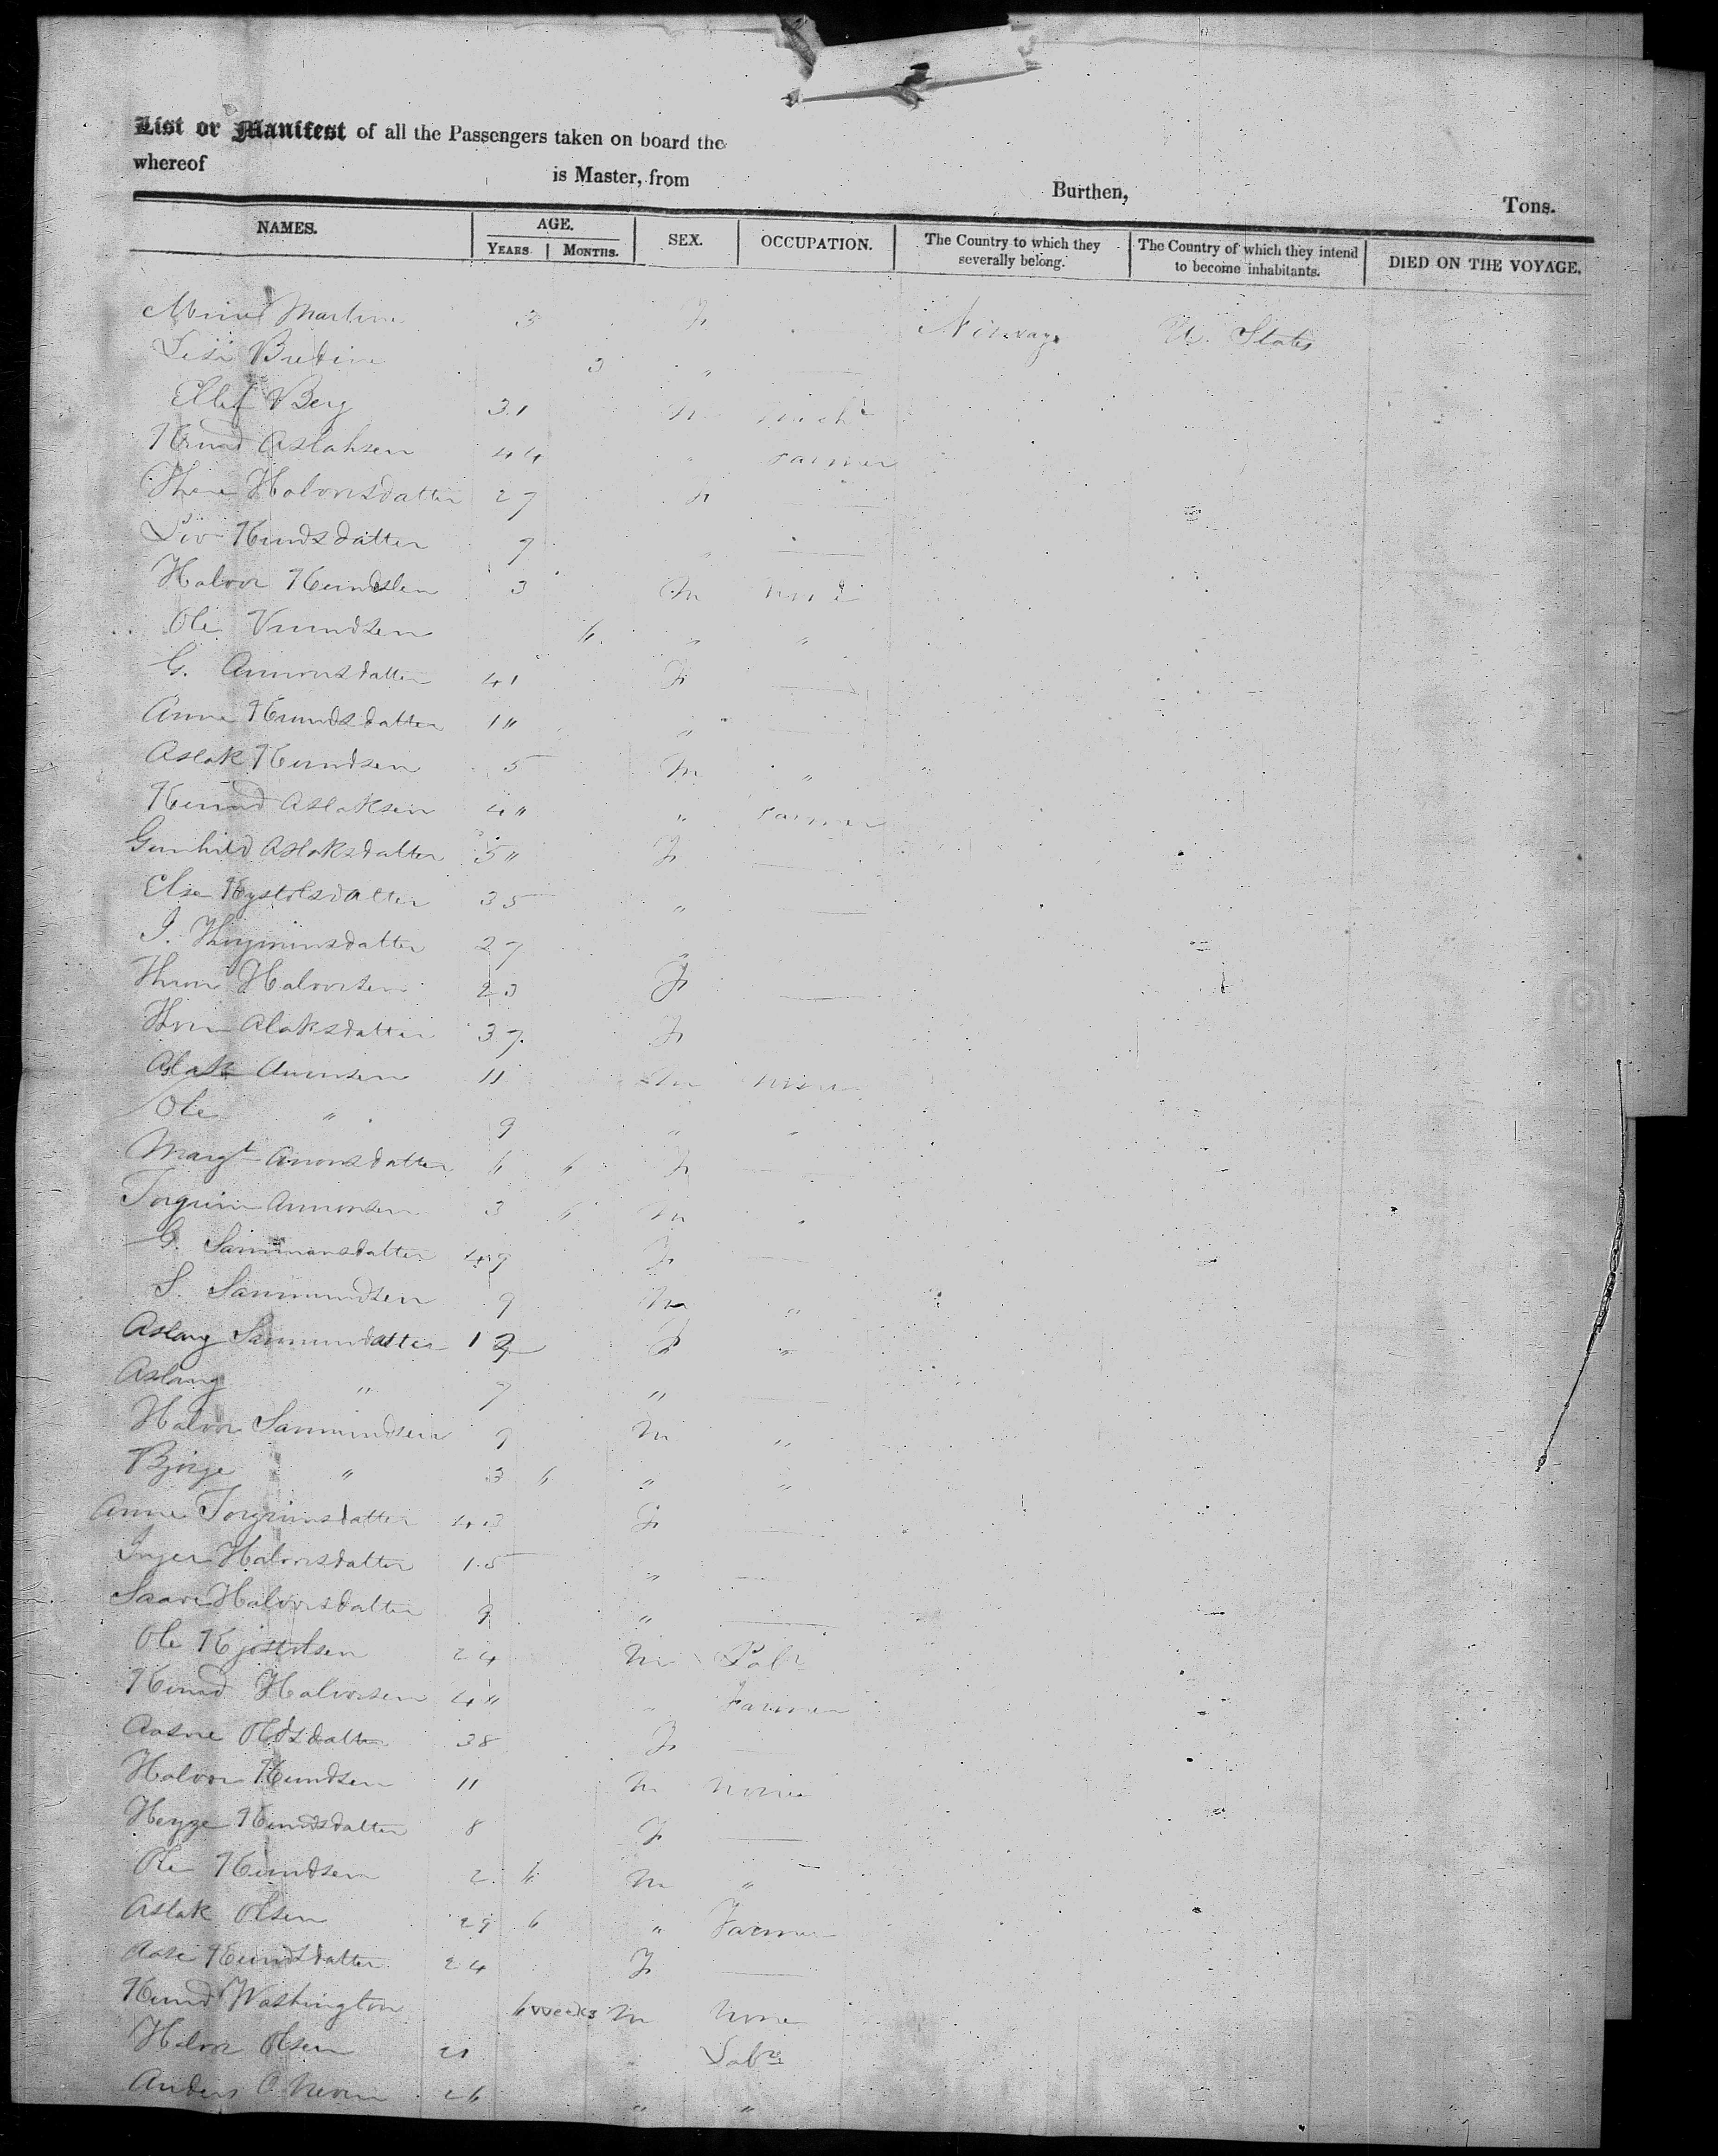 List or Manifest of all the Passengers taken on board the
whereof is Master, from Burthen, Tons.
NAMES. AGE. YEARS. MONTHS. SEX. OCCUPATION. The Country to which they severally belong. The Country of which they intend to become inhabitants. DIED ON THE VOYAGE.
Martine 3 F — Norway U. States
3 " —
Ellef Berg 31 M
Knud Aslaksen 44 " Farmer
Halvorsdatter 27 F —
Liv Knudsdatter 7 " —
Halvor Knudsen 3 M None
Ole Knudsen 6 " "
G. 41 F —
Anne Knudsdatter 1" " —
Aslak Knudsen 5 M "
Knud Aslaksen 4" " Farmer
Gunhild Aslaksdatter 5" F —
Else Kystolsdatter 35 " —
27 "
Halvorsen 23 F —
Alaksdatter 37 F
Aslak 11 M None
Ole " 9 " "
Margt 6 6 F
3 6 M "
G. 49 F —
S. Sammundsen 9 M "
Aslaug 12 F "
Aslaug " 7 " —
Halvor Sammundsen 9 M "
Bjorge " 3 6 " "
Anne Torgrimsdatter 43 F —
Inger Halvorsdatter 15 " —
Halvorsdatter 9 " —
Ole Kjostolsen 24 M Labr
Knud Halvorsen 4" " Farmer
Aasne Olsdatter 38 F —
Halvor Knudsen 11 M None
Knudsdatter 8 F —
Ole Knudsen 2 6 M "
Aslak Olsen 29 6 " Farmer
Aase Knudsdatter 24 F —
Knud Washington 6 weeks M None
Halvor Olsen 21 " Labr
Anders O. 26 " "